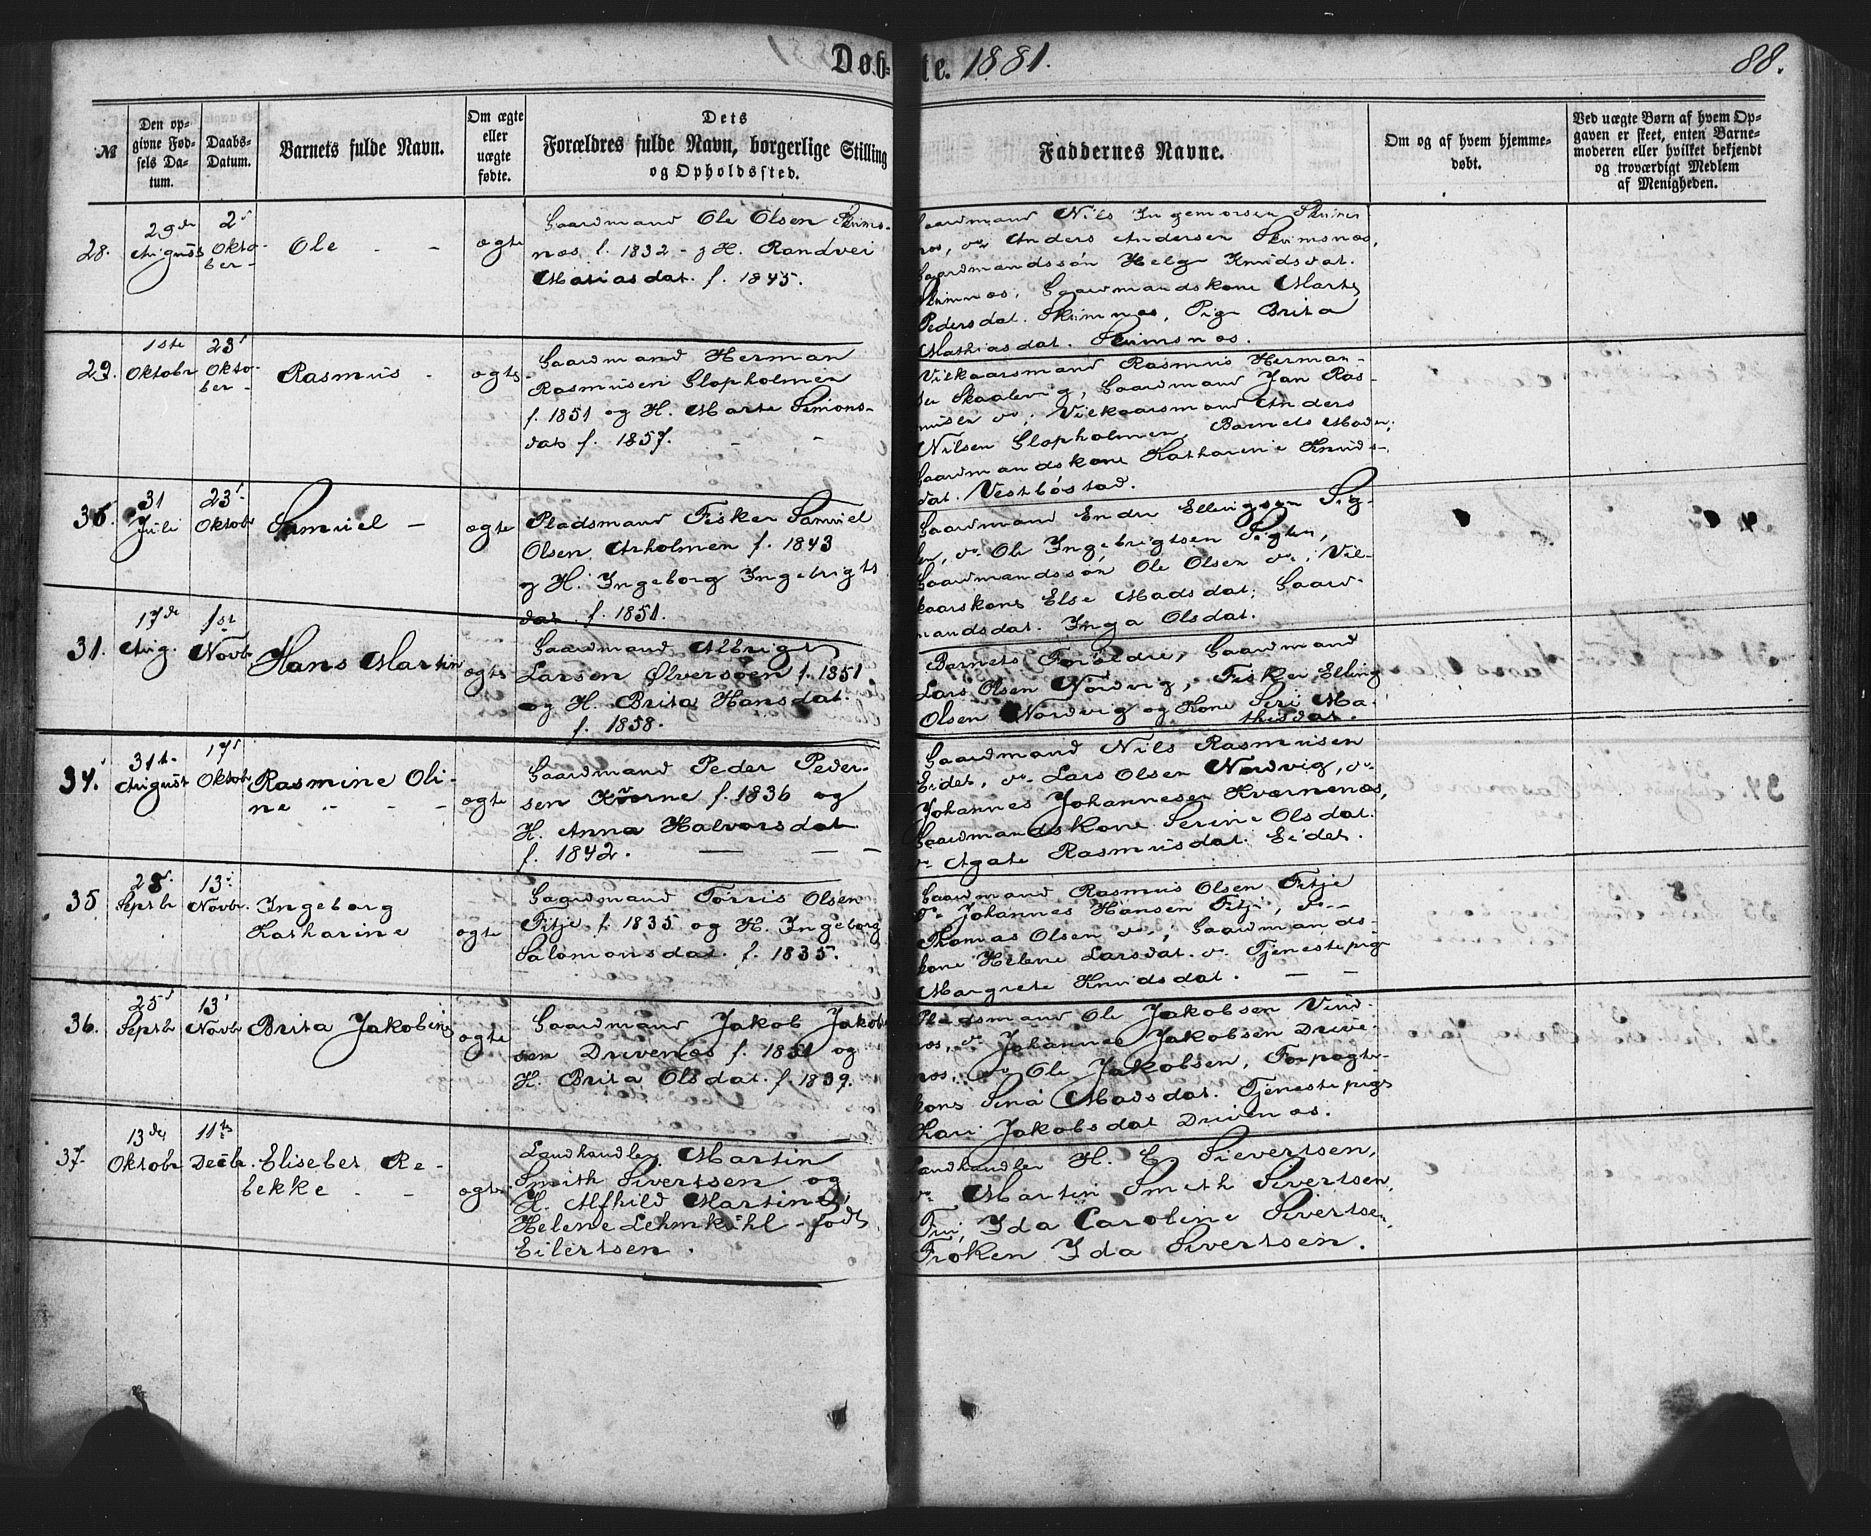 Døb-
te. 1881.
88.
№
Den op-
givne Fød-
sels Da-
tum.
Daabs-
Datum.
Barnets fulde Navn.
Om ægte
eller
uægte
fødte.
Dets
Forældres fulde Navn, borgerlige Stilling
og Opholdssted.
Faddernes Navne.
Om og af hvem hjemme-
døbt.
Ved uægte Børn af hvem Op-
gaven er skeet, enten Barne-
moderen eller hvilket bekjendt
og troværdigt Medlem
af Menigheden.
28.
29de
August
2d
Okto-
ber -
Ole - -
ogte
Gaardmand Ole Olsen Skims-
nos f. 1832 - g H. Randvei
Matiasdat. f. 1845.
Gaardmand Nils Ingemorsen
nos, do Anders Andersen Skimsnos,
Gaardmandssøn Helge Knudsdat.
Gaardmandskone Marte
Pedersdat. Pige Brita
Mathiasdat. Skimsnos.
29.
1ste
Oktobr
23d
Okto-
ber -
Rasmus -
ogte
Gaardmand Herman
Rasmusen Glopholmen
f. 1851 og H. Marte Simons-
dat f. 1857. - -
Vilkaarsmand Rasmus Herman-
Skaalevig, Gaardmand Jan Ras-
musen do, Vilkaarsmand Anders
Nilsen Glopholmen, Barnets Moder,
Gaardmandskone Katharine Knuds-
dat. Vestbøstad.
31
Juli
23d
Oktobr
Samuel -
ogte
Pladsmand Fisker Samuel
Olsen Arholmen f. 1843
og H. Ingeborg Ingebrigts
dat. f. 1851.
Gaardmand Endre Ellingsen
do Ole Ingebrigtsen
Gaardmandssøn Ole Olsen do, Vil-
kaarskone Else Madsdat; Gaard-
mandsdat. Inga Olsdat.
31.
17de
Aug.
1st
Novbr
Hans Martin
ogte
Gaardmand Albrigt
Larsen Ølversøen f. 1851
og H. Brita Hansdat.
f. 1858.
Barnets Foroldre, Gaardmand
Lars Olsen Nordvig, Fisker Elling
Olsen Nordvig og Kone Seri Ma-
thisdat.
34.
31t
August
17d
Oktobr
Rasmine Oli-
ne - - -
ogte
Gaardmand Peder Peder-
sen Kvorne f. 1836 og
H. Anna Halvorsdat
f. 1842. — — -
Gaardmand Nils Rasmusen
Eidet, do Lars Olsen Nordvig, do
Johannes Johannesen Kvernenos,
Gaardmandskone Serine Olsdat.
do Agate Rasmusdat. Eidet.
35
Septbr
13d
Novbr.
Ingeborg
Katharine
ogte
Gaardmand Torris Olsen
Fitje f. 1835 og H. Ingeborg
Salomonsdat. f. 1835.
Gaardmand Rasmus Olsen Fitje
do Johannes Hansen Fitje, do -
Thomas Olsen do, Gaardmands-
kone Helene Larsdat. do Tjenestepige
Margrete Knudsdat. - -
36.
25d
Septbr
13d
Novbr
Brita Jakobine
ogte
Gaardmand Jakob Jakob
sen Drivenos f. 1851 og
H. Brita Olsdat. f. 1839.
Pladsmand Ole Jakobsen Vind-
nos, do Johannes Jakobsen Drive-
nos, do Ole Jakobsen, Forpagter-
kone Sina Madsdat. Tjenestepige
Kari Jakobsdat Drivenos.
37.
13de
Oktobr
11te
Decbr.
Elisebet Re-
bekke - -
ogte
Landhandler Martin
Smith Sivertsen og
H. Alfhild Martine
Helene Lehmkuhl - født
Eilertsen.
Landhandler H. C. Sievertsen,
do Martin Smith Sivertsen,
Fru, Ida Caroline Sivertsen,
Frøken Ida Sivertsen.